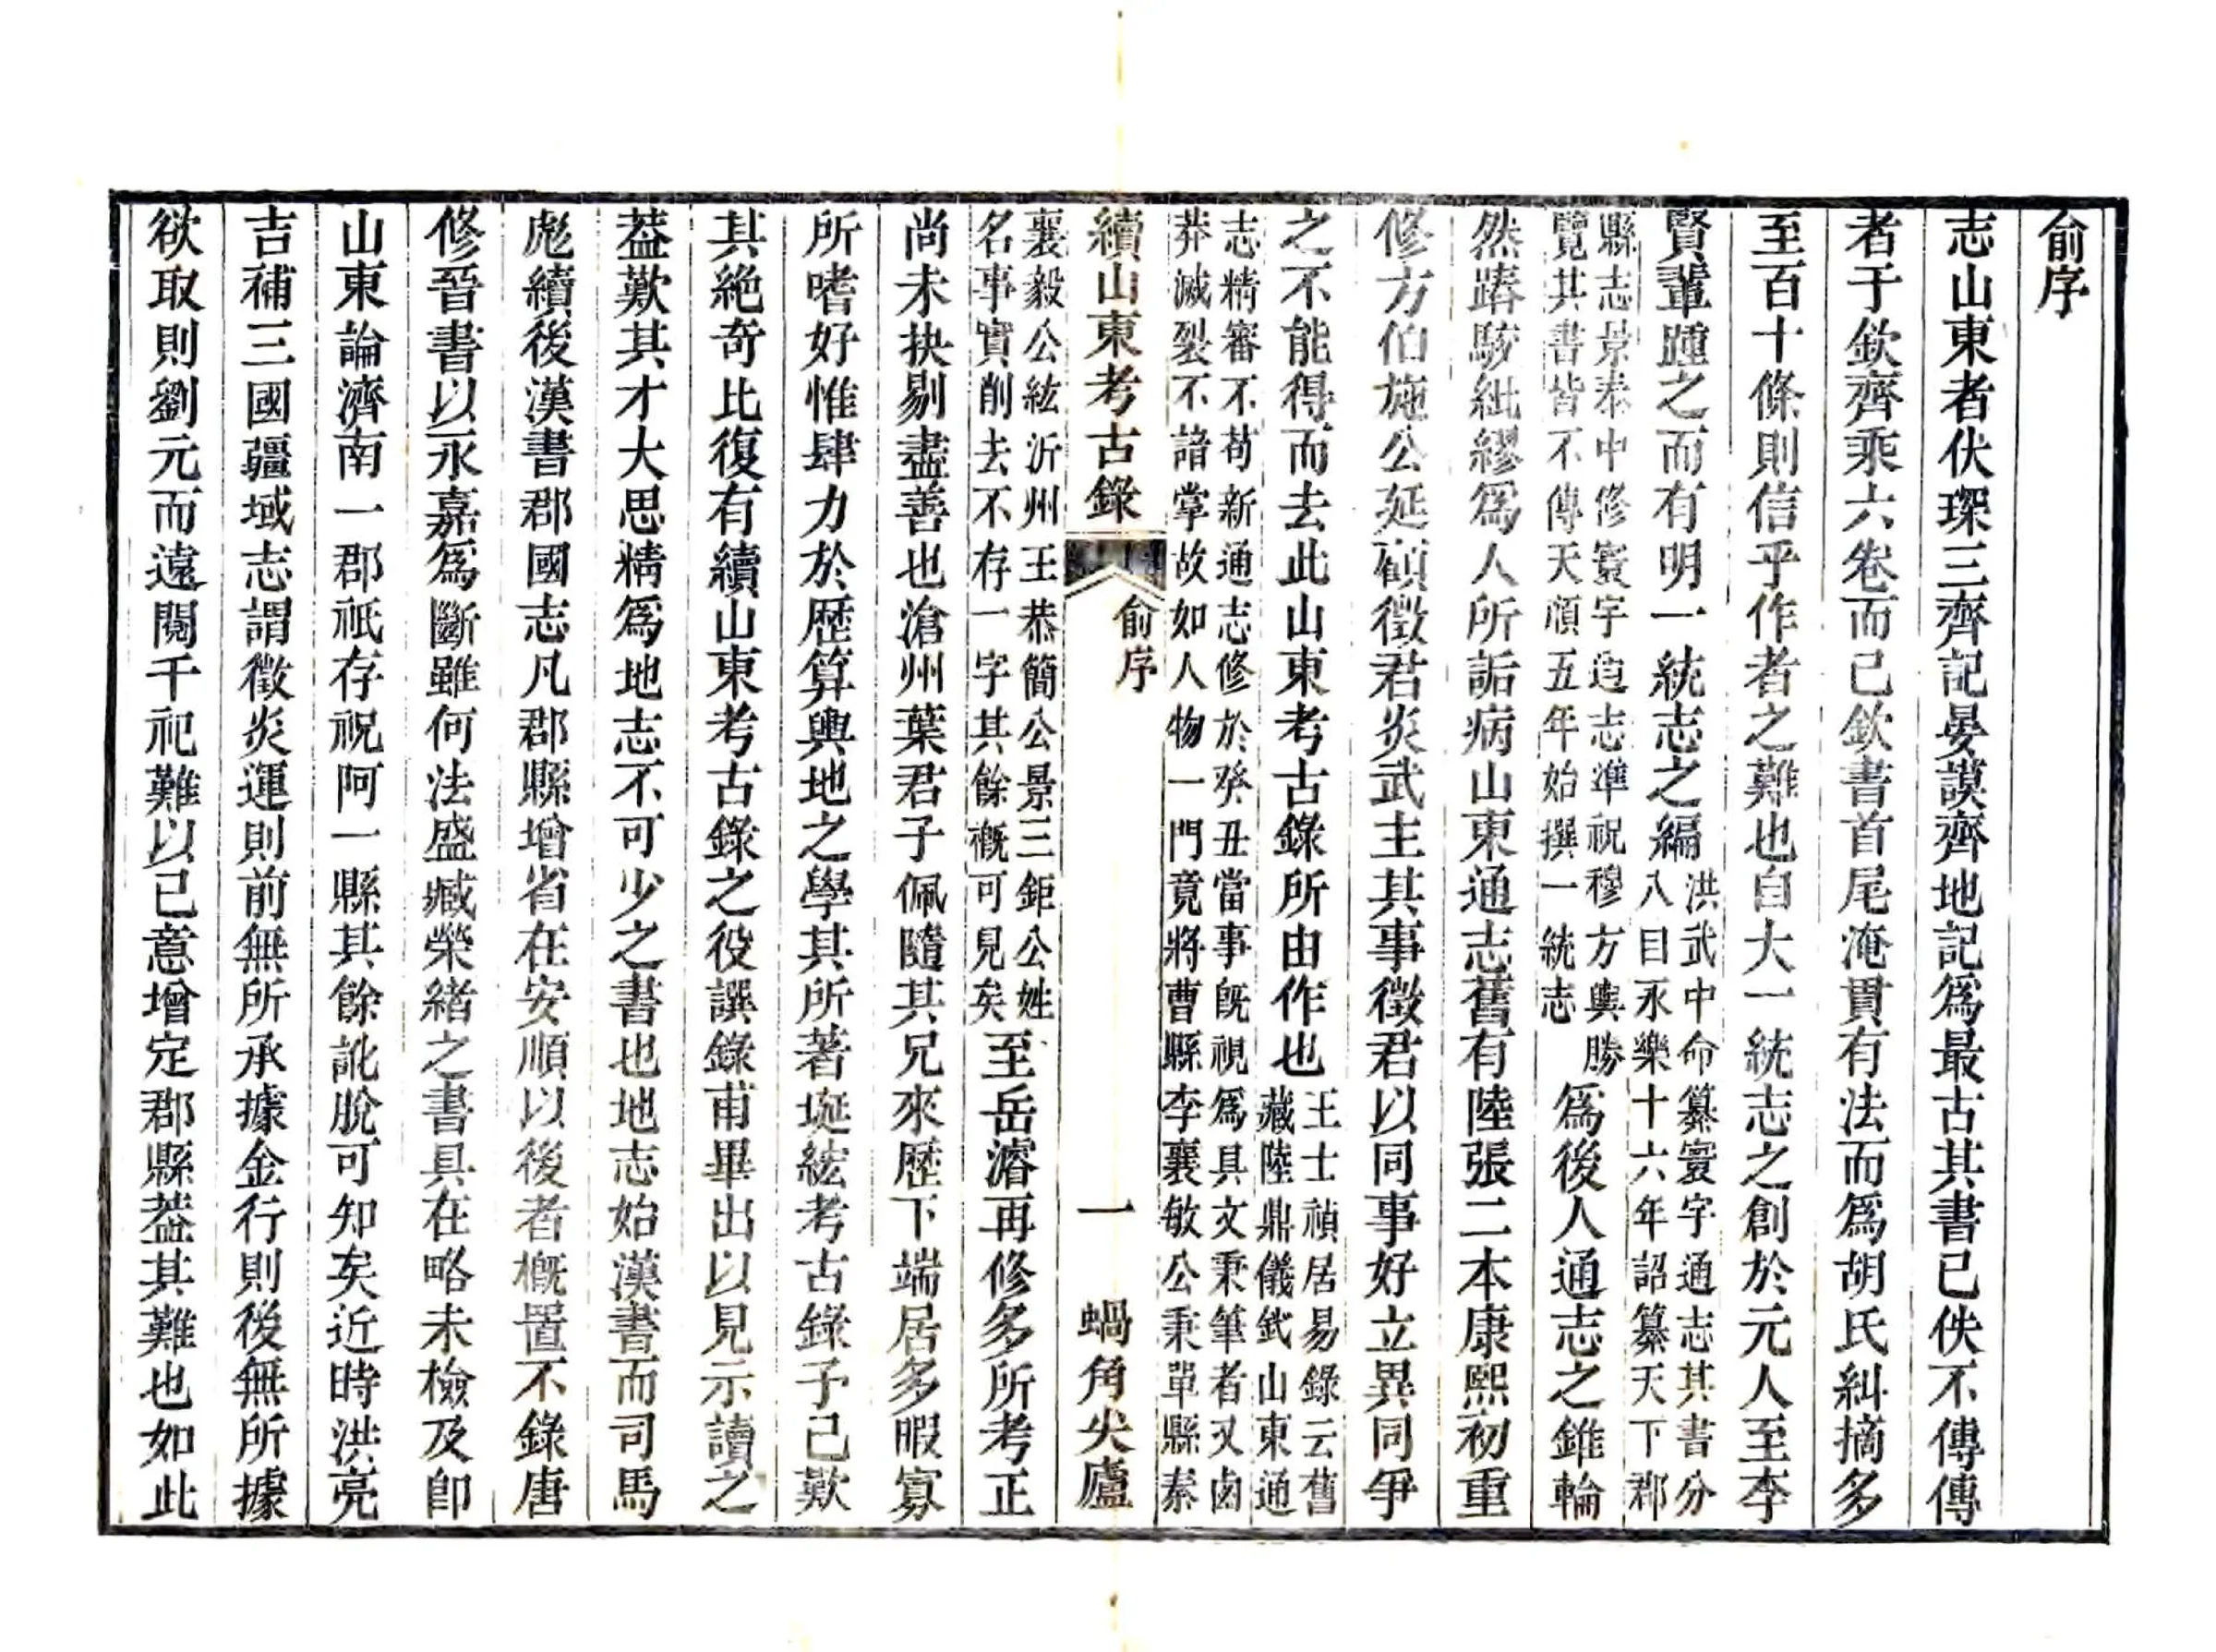 俞序
志山東者伏琛三齊記晏謨齊地記爲最古其書已佚不傳傳
者于欽齊乘六卷而已欽書首尾淹貫有法而爲胡氏糾摘多
至百十條則信乎作者之難也自大一統志之創於元人至李
賢輩踵之而有明一統志之編洪武中命纂寰宇通志其書分
八目永樂十六年詔纂天下郡
縣志景泰中修寰宇通志準祝穆方輿勝
覽其書皆不傳天順五年始撰一統志爲後人通志之錐輪
然踳駮紕繆爲人所詬病山東通志舊有陸張二本康熙初重
修方伯施公延顧徵君炎武主其事徵君以同事好立異同爭
之不能得而去此山東考古錄所由作也王士禎居易錄云舊
藏陸鼎儀釴山東通
志精審不苟新通志修於癸丑當事旣視爲具文秉筆者又鹵
莽滅裂不諳掌故如人物一門竟將曹縣李襄敏公秉單縣秦
續山東考古錄 俞序 一 蝸角尖廬
襄毅公紘沂州王恭簡公景三鉅公姓
名事實削去不存一字其餘槪可見矣至岳濬再修多所考正
尚未抉剔盡善也滄州葉君子佩隨其兄來歷下端居多暇寡
所嗜好惟肆力於歷算輿地之學其所著埏紘考古錄予已歎
其絶奇比復有續山東考古錄之役譔錄甫畢出以見示讀之
葢歎其才大思精爲地志不可少之書也地志始漢書而司馬
彪續後漢書郡國志凡郡縣增省在安順以後者槪置不錄唐
修晉書以永嘉爲斷雖何法盛臧榮緒之書具在略未檢及卽
山東論濟南一郡祇存祝阿一縣其餘訛脫可知矣近時洪亮
吉補三國疆域志謂徵炎運則前無所承據金行則後無所據
欲取則劉元而遠閱千祀難以已意增定郡縣葢其難也如此